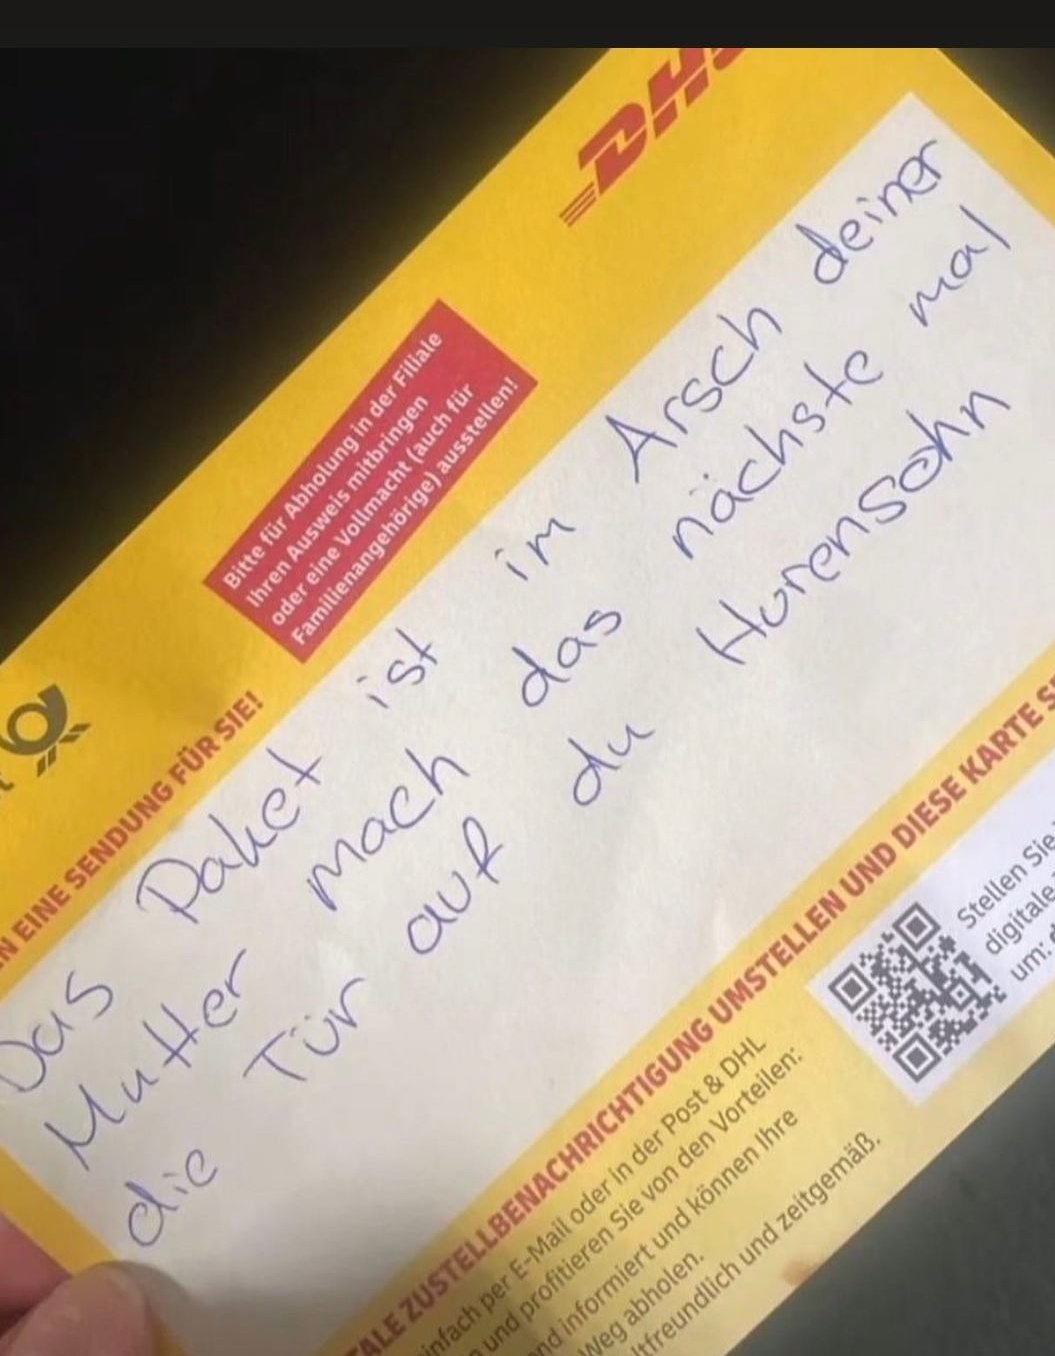 DHL
Bitte für Abholung in der Filiale
Ihren Ausweis mitbringen
oder eine Vollmacht (auch für
Familienangehörige) ausstellen!
EINE SENDUNG FÜR SIE!
Das Paket ist im Arsch deiner
Mutter mach das nächste mal
die Tür auf du Hurensohn
ZUSTELLBENACHRICHTIGUNG UMSTELLEN UND DIESE KARTE
per E-Mail oder in der Post & DHL
und profitieren Sie von den Vorteilen:
informiert und können Ihre
Weg abholen.
und zeitgemäß.
Stellen Sie
digitale
um: